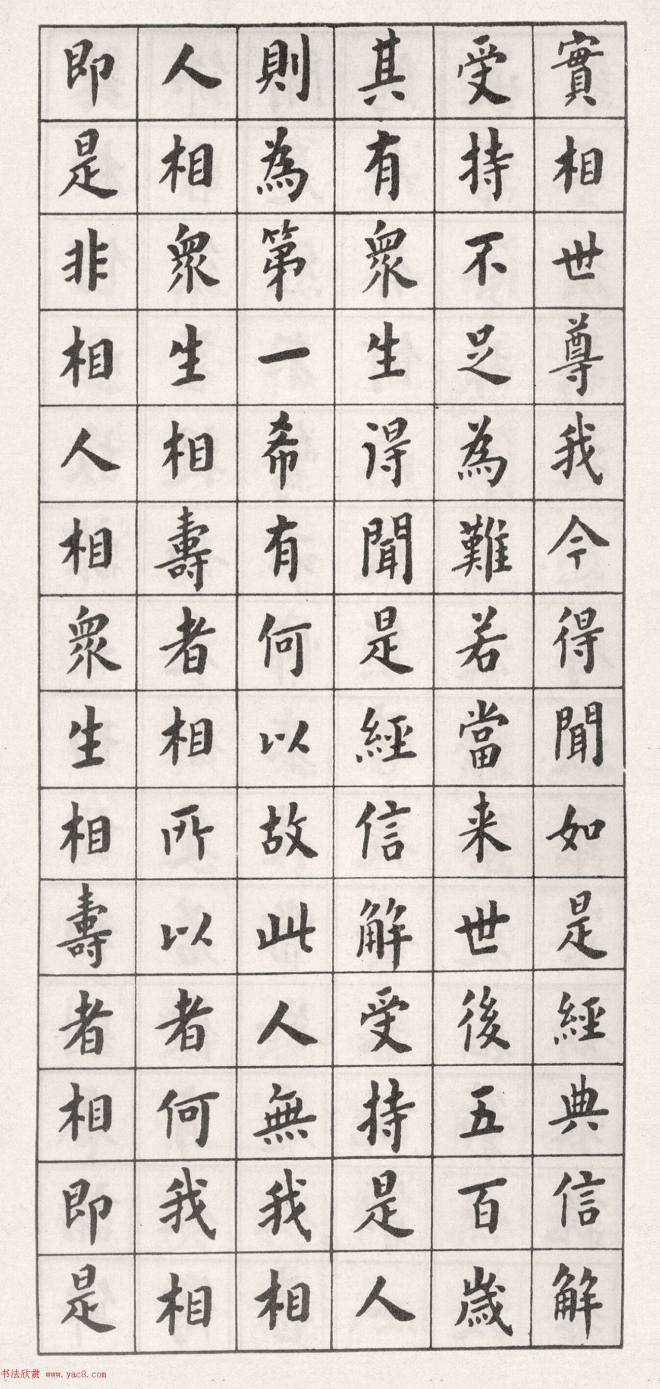 實相世尊我今得聞如是經典信解
受持不足為難若當来世後五百歲
其有衆生得聞是經信解受持是人
則為第一希有何以故此人無我相
人相衆生相壽者相所以者何我相
即是非相人相衆生相壽者相即是
书法欣赏 www.yac8.com